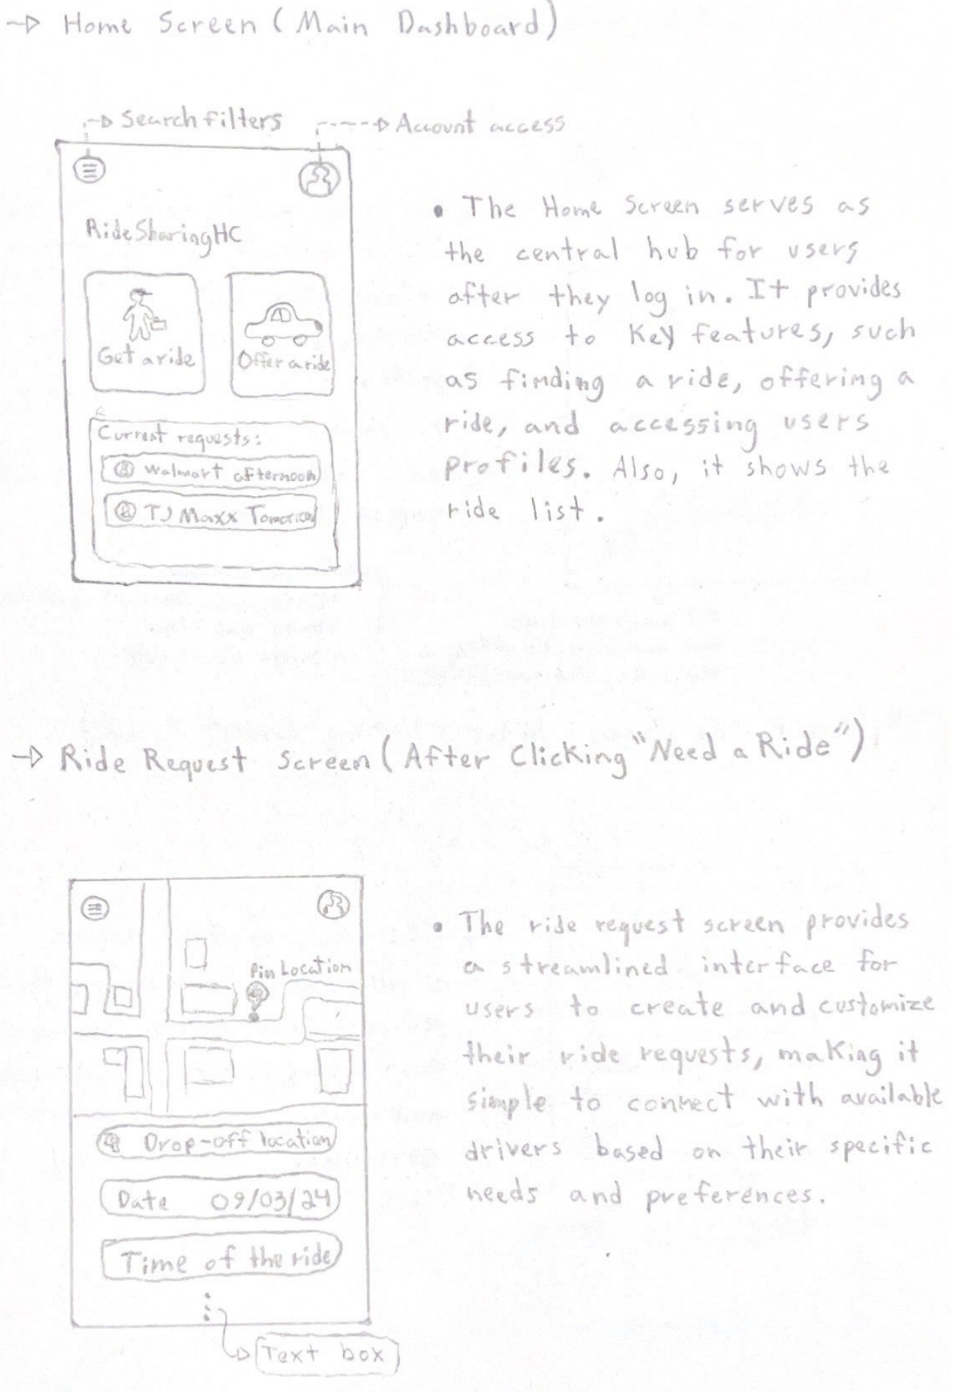 → Home Screen (Main Dashboard)
Search filters
Account access
RideSharingHC
Get a ride
Offer a ride
Current requests:
Walmart afternoon
TJ Maxx Tomorrow
• The Home Screen serves as
the central hub for users
after they log in. It provides
access to key features, such
as finding a ride, offering a
ride, and accessing users
profiles. Also, it shows the
ride list.
→ Ride Request Screen (After Clicking "Need a Ride")
Pin Location
Drop-off location
Date 09/03/24
Time of the ride
Text box
• The ride request screen provides
a streamlined interface for
users to create and customize
their ride requests, making it
simple to connect with available
drivers based on their specific
needs and preferences.